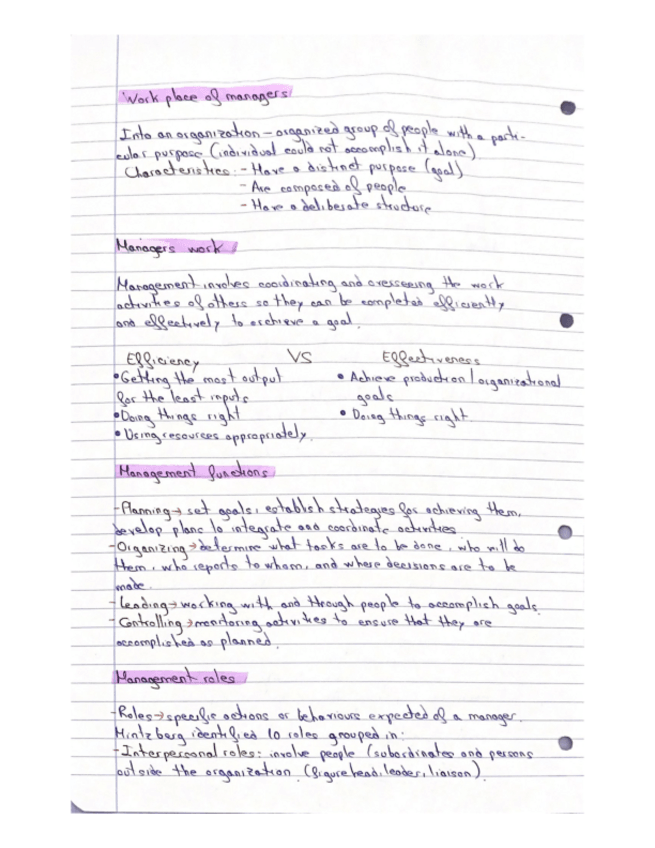 Work place of managers
Into an organization - organized group of people with a parti-
cular purpose (individual could not accomplish it alone)
Characteristics: - Have a distinct purpose (goal)
- Are composed of people
- Have a deliberate structure
Managers work
Management involves coordinating and overseeing the work
activities of others so they can be completed efficiently
and effectively to archieve a goal.
Efficiency VS Effectiveness
• Getting the most output • Achieve production / organizational
for the least inputs goals
• Doing things right • Doing things right
• Using resources appropriately.
Management functions
- Planning → set goals, establish strategies for achieving them,
develop plans to integrate and coordinate activities
- Organizing → determine what tasks are to be done, who will do
them, who reports to whom, and where decisions are to be
made.
- Leading → working with and through people to accomplish goals.
- Controlling → monitoring activities to ensure that they are
accomplished as planned.
Management roles
- Roles → specific actions or behaviours expected of a manager.
Mintzberg identified 10 roles grouped in:
- Interpersonal roles: involve people (subordinates and persons
outside the organization (figurehead, leader, liaison).